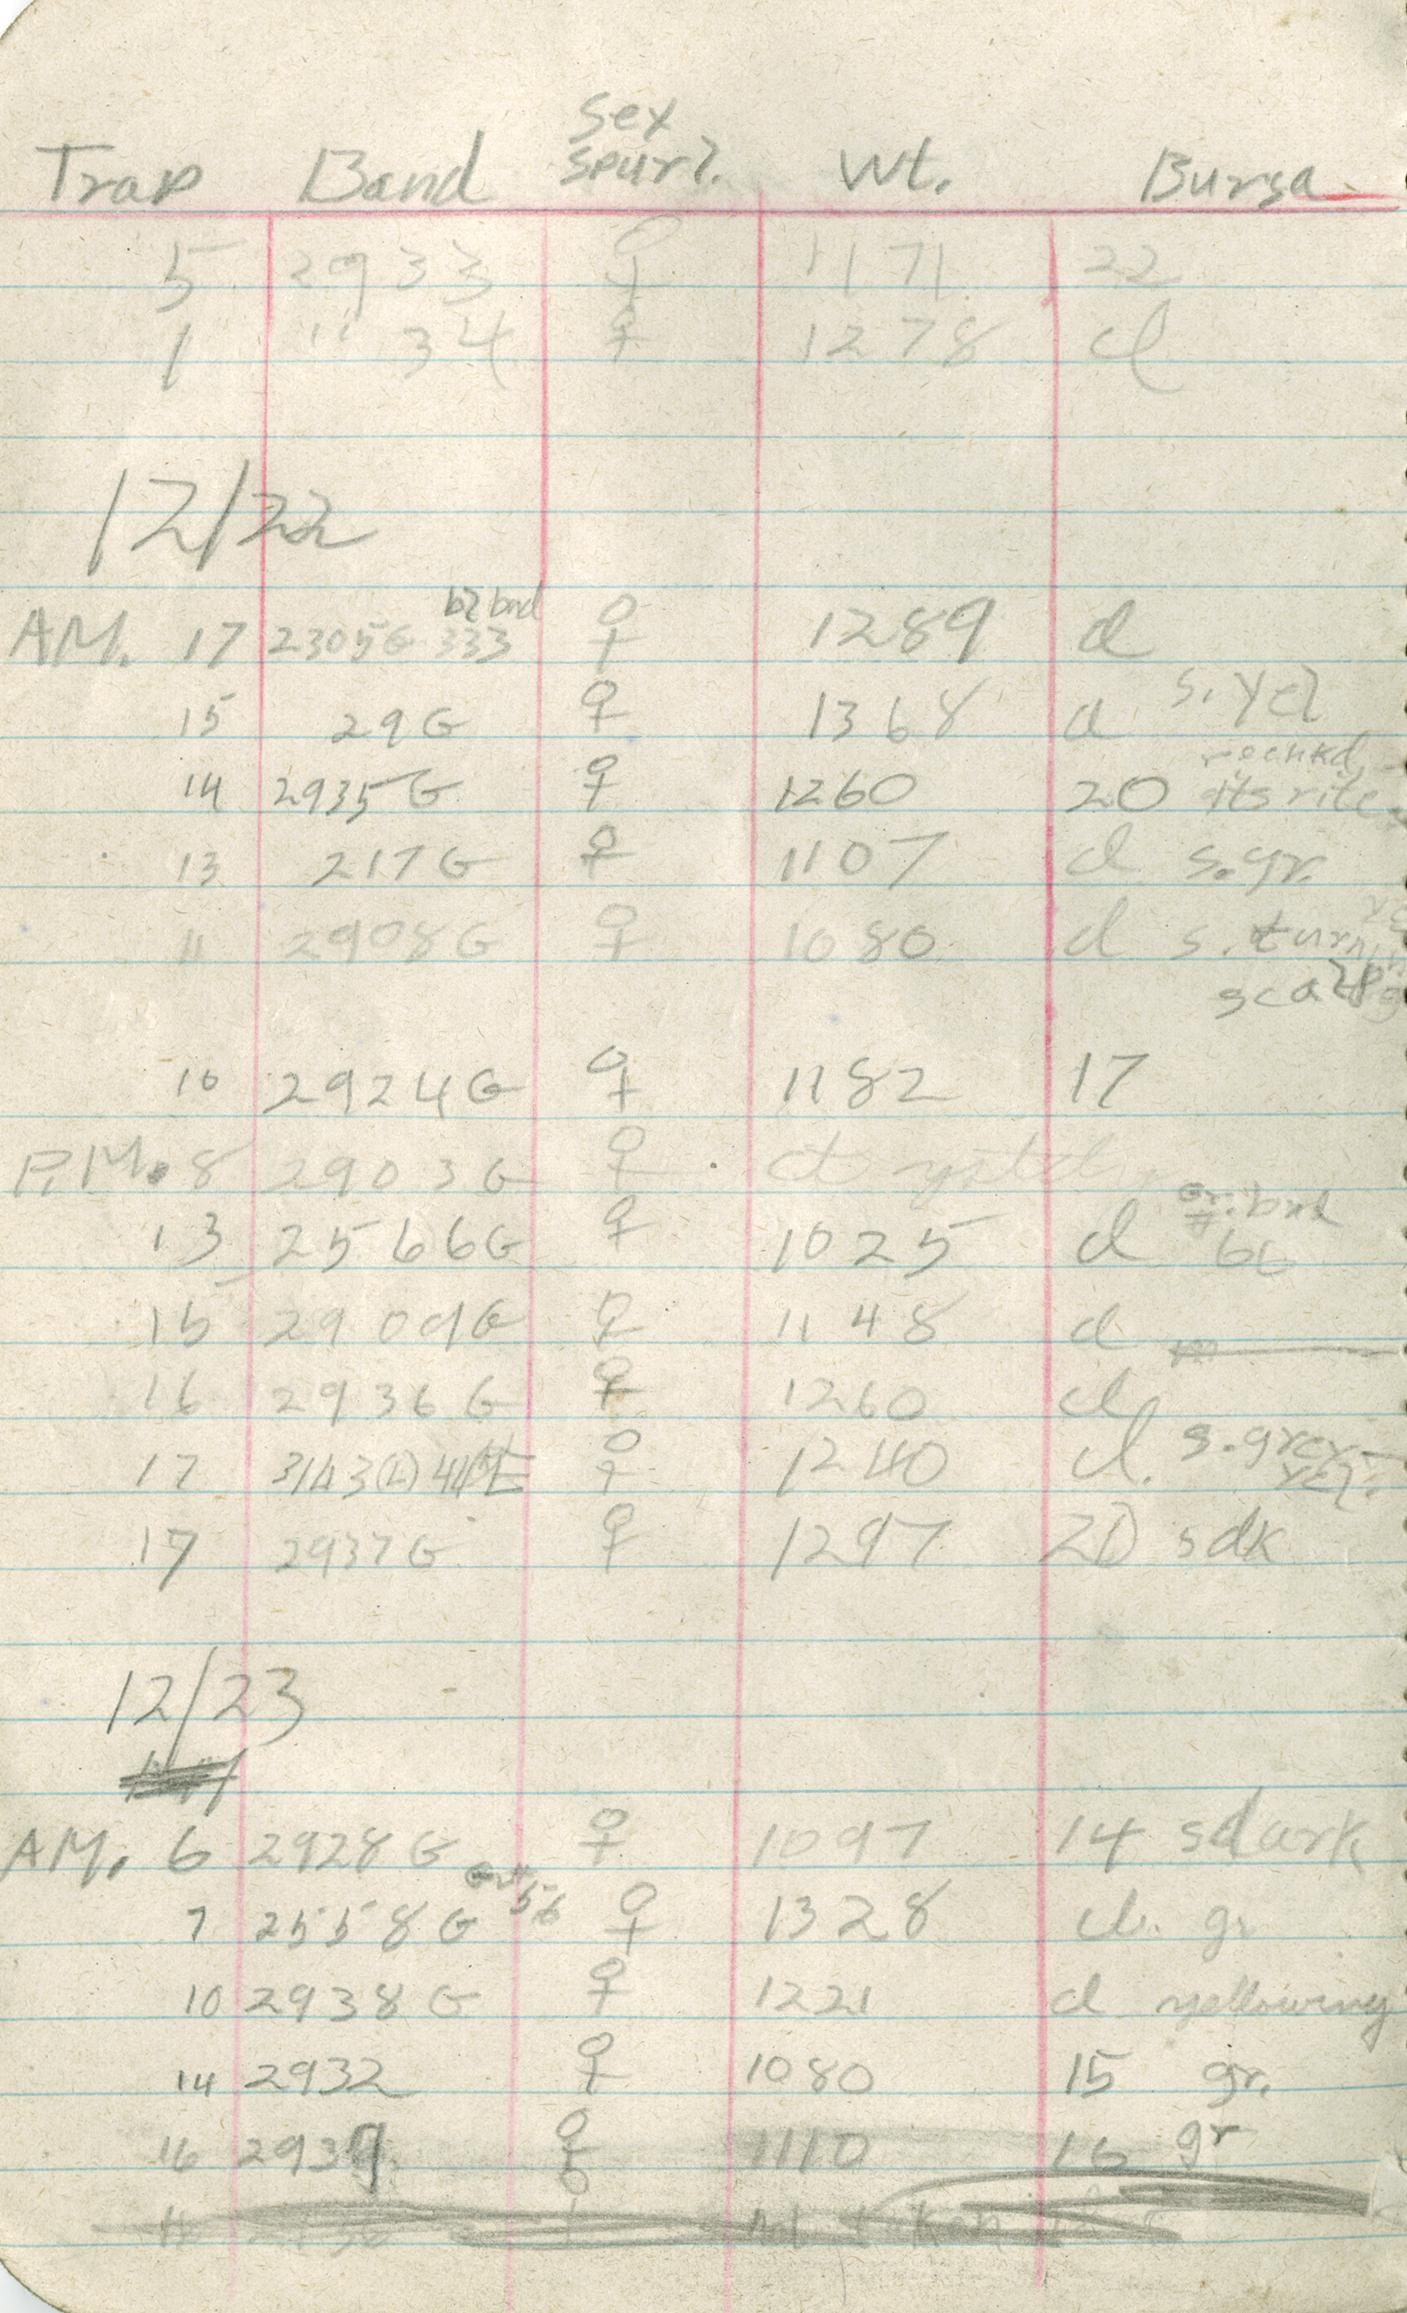 Trap Band Sex Spur? Wt. Bursa
5 2933 ♀ 1171 22
1 " 34 ♀ 1278 cl
12/22
AM. 17 2305G bl bnd 333 ♀ 1289 d
15 29G ♀ 1368 d s. yel
14 2935G ♀ 1260 20 rechkd itsrite
13 217G ♀ 1107 d s. gr.
11 2908G ♀ 1080 d s. turn
10 2924G ♀ 1182 17
P.M. 8 2903G ♀
13 2566G ♀ 1025 d Gr. bnd #
15 2909G ♀ 1148 d
16 2936G ♀ 1260 cl
17 ♀ 1240 cl. s. grey yel.
17 2937G ♀ 1297 20 sdk
12/23
AM. 6 2928G ♀ 1097 14 sdark
7 2558G Gr# 56 ♀ 1328 cl. gr
10 2938G ♀ 1221 d yellowing
14 2932 ♀ 1080 15 gr.
16 2939 ♀ 1110 16 gr